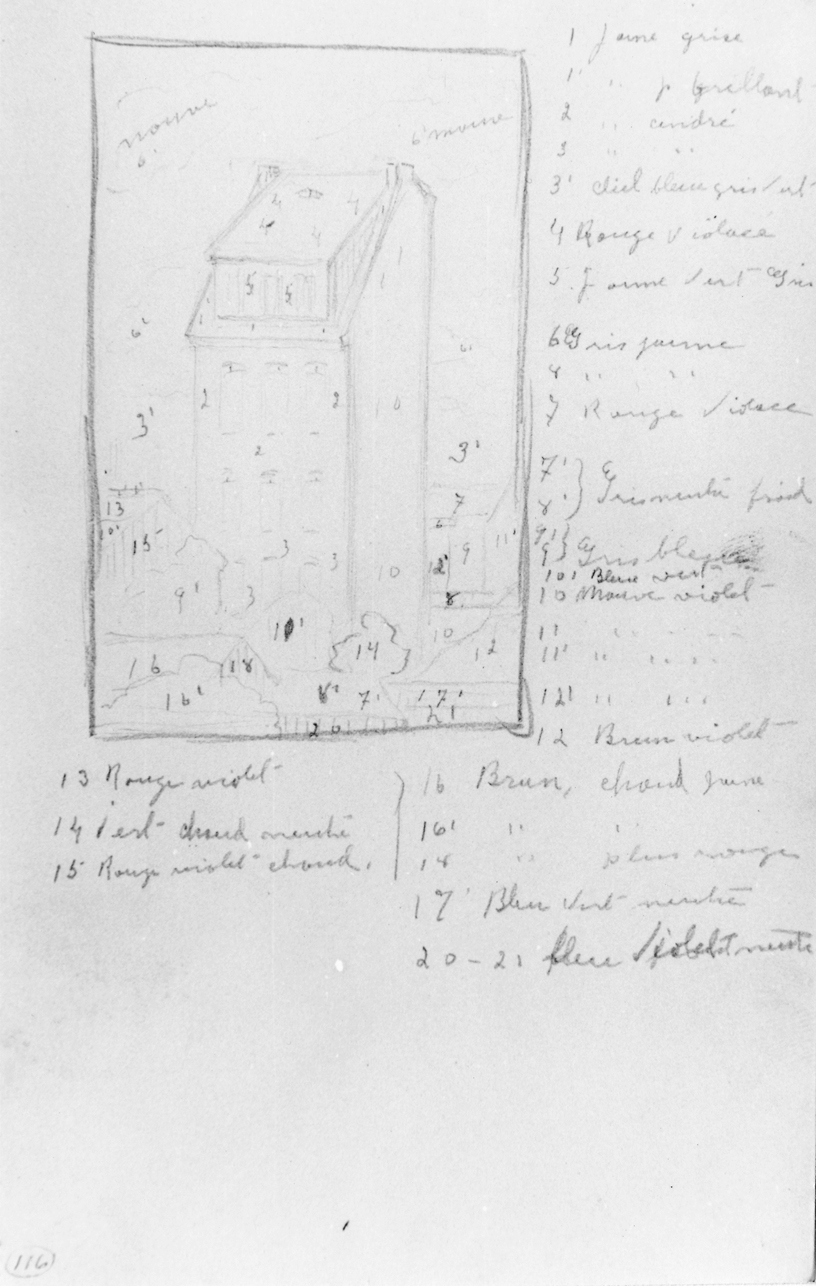 mauve
6'
6' mauve
4 4
4 4
5 5
1 1 1
1
1
6'
6'
2 2
10
3'
2
3'
13
7
10'
15
9
11'
3 3
12'
9'
3
10
8
10'
14
10
12
16
18
16'
8'
7'
17'
20
21
1 Jaune grise
1' " p brillant
2 " cendré
3 " "
3' ciel bleu gris vert
4 Rouge violacé
5 Jaune Vert Gris
6 Gris jaune
8 " "
7 Rouge violacé
7'
8' Gris neutre froid
9'
9 Gris bleu
10' Bleu vert
10 Mauve violet
11 " "
11' " "
12' " "
12 Brun violet
13 Rouge violet
14 Vert chaud neutre
15 Rouge violet chaud.
16 Brun, chaud jaune
16' " "
18 " plus rouge
17' Bleu Vert neutre
20-21 bleu Violet neutre
116